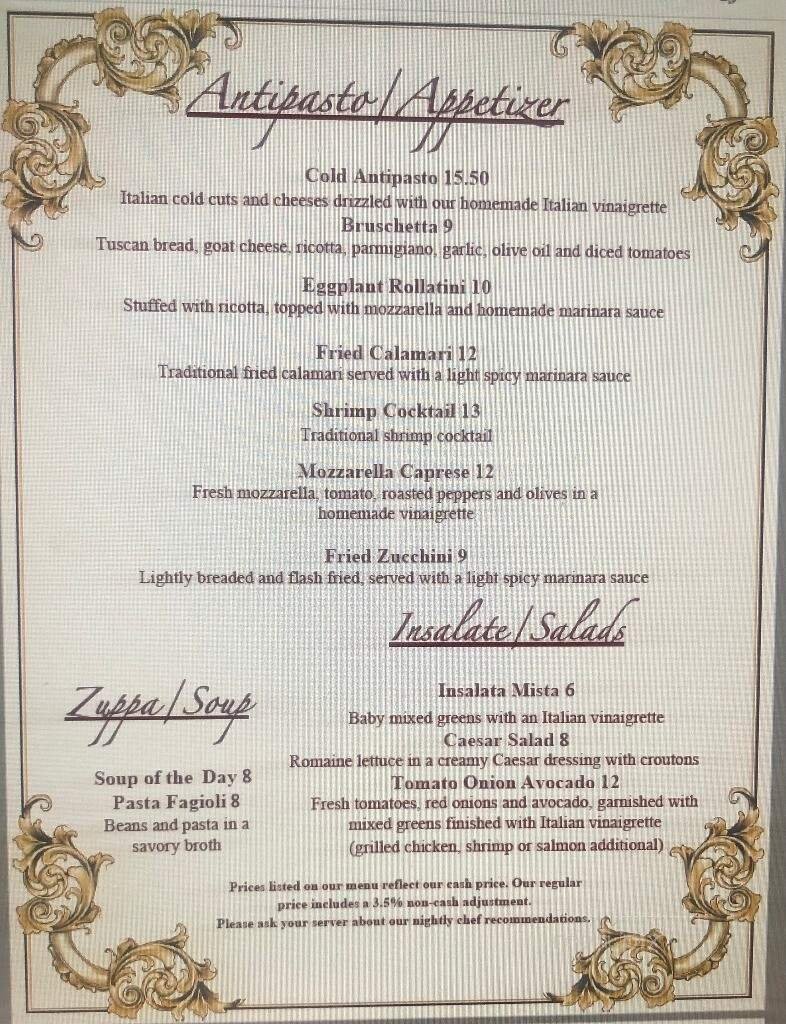 Antipasto/Appetizer
Cold Antipasto 15.50
Italian cold cuts and cheeses drizzled with our homemade Italian vinaigrette
Bruschetta 9
Tuscan bread, goat cheese, ricotta, parmigiano, garlic, olive oil and diced tomatoes
Eggplant Rollatini 10
Stuffed with ricotta, topped with mozzarella and homemade marinara sauce
Fried Calamari 12
Traditional fried calamari served with a light spicy marinara sauce
Shrimp Cocktail 13
Traditional shrimp cocktail
Mozzarella Caprese 12
Fresh mozzarella, tomato, roasted peppers and olives in a
homemade vinaigrette
Fried Zucchini 9
Lightly breaded and flash fried, served with a light spicy marinara sauce
Zuppa/Soup
Soup of the Day 8
Pasta Fagioli 8
Beans and pasta in a
savory broth
Insalate/Salads
Insalata Mista 6
Baby mixed greens with an Italian vinaigrette
Caesar Salad 8
Romaine lettuce in a creamy Caesar dressing with croutons
Tomato Onion Avocado 12
Fresh tomatoes, red onions and avocado, garnished with
mixed greens finished with Italian vinaigrette
(grilled chicken, shrimp or salmon additional)
Prices listed on our menu reflect our cash price. Our regular
price includes a 3.5% non-cash adjustment.
Please ask your server about our nightly chef recommendations.